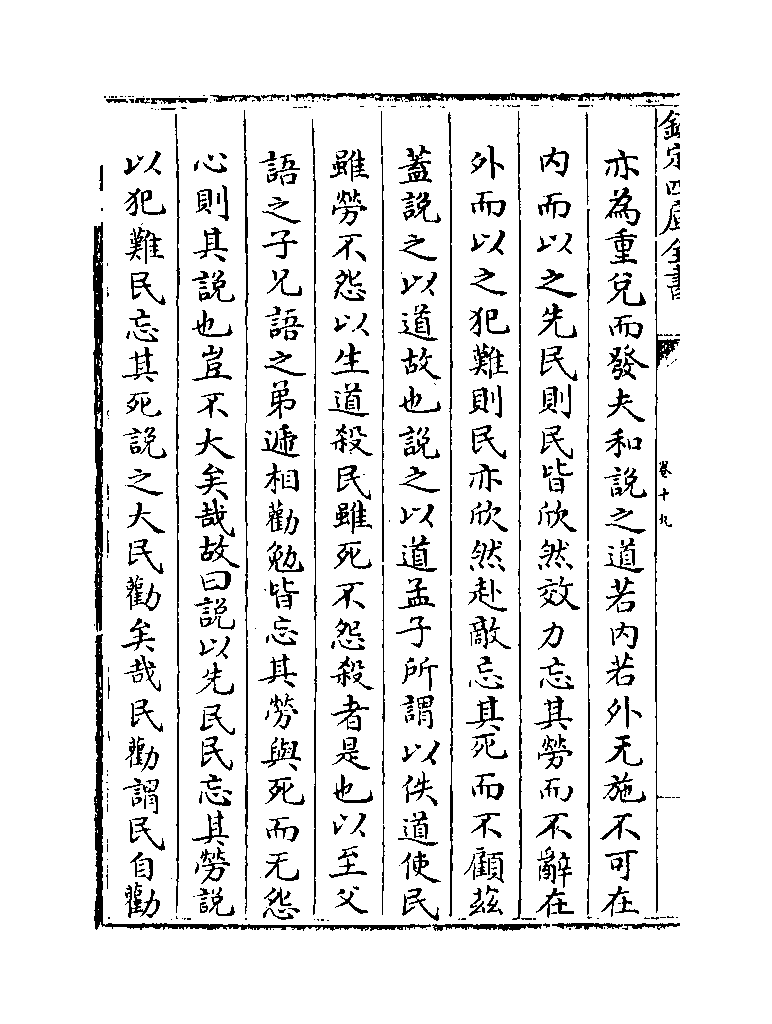 欽定四庫全書
卷十九
亦為重兌而發夫和說之道若内若外无施不可在
内而以之先民則民皆欣然效力忘其勞而不辭在
外而以之犯難則民亦欣然赴敵忘其死而不顧兹
蓋說之以道故也說之以道孟子所謂以佚道使民
雖勞不怨以生道殺民雖死不怨殺者是也以至父
語之子兄語之弟遞相勸勉皆忘其勞與死而无怨
心則其說也豈不大矣哉故曰說以先民民忘其勞說
以犯難民忘其死說之大民勸矣哉民勸謂民自勸